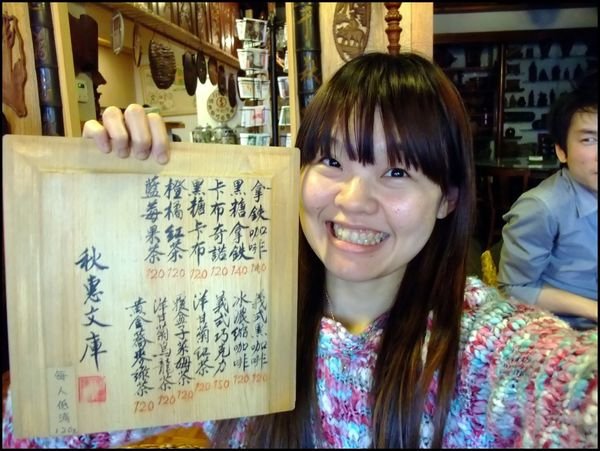 拿鐵咖啡 140
黑糖拿鐵 140
卡布奇諾 120
黑糖卡布 120
橙橘紅茶 120
藍莓果茶 120
義式黑咖啡 120
冰濃縮咖啡 120
義式巧克力 150
洋甘菊紅茶 120
覆盆子茶 120
洋甘菊烏龍茶 120
黃金蕎麥綠茶 120
秋惠文庫
每人低消120